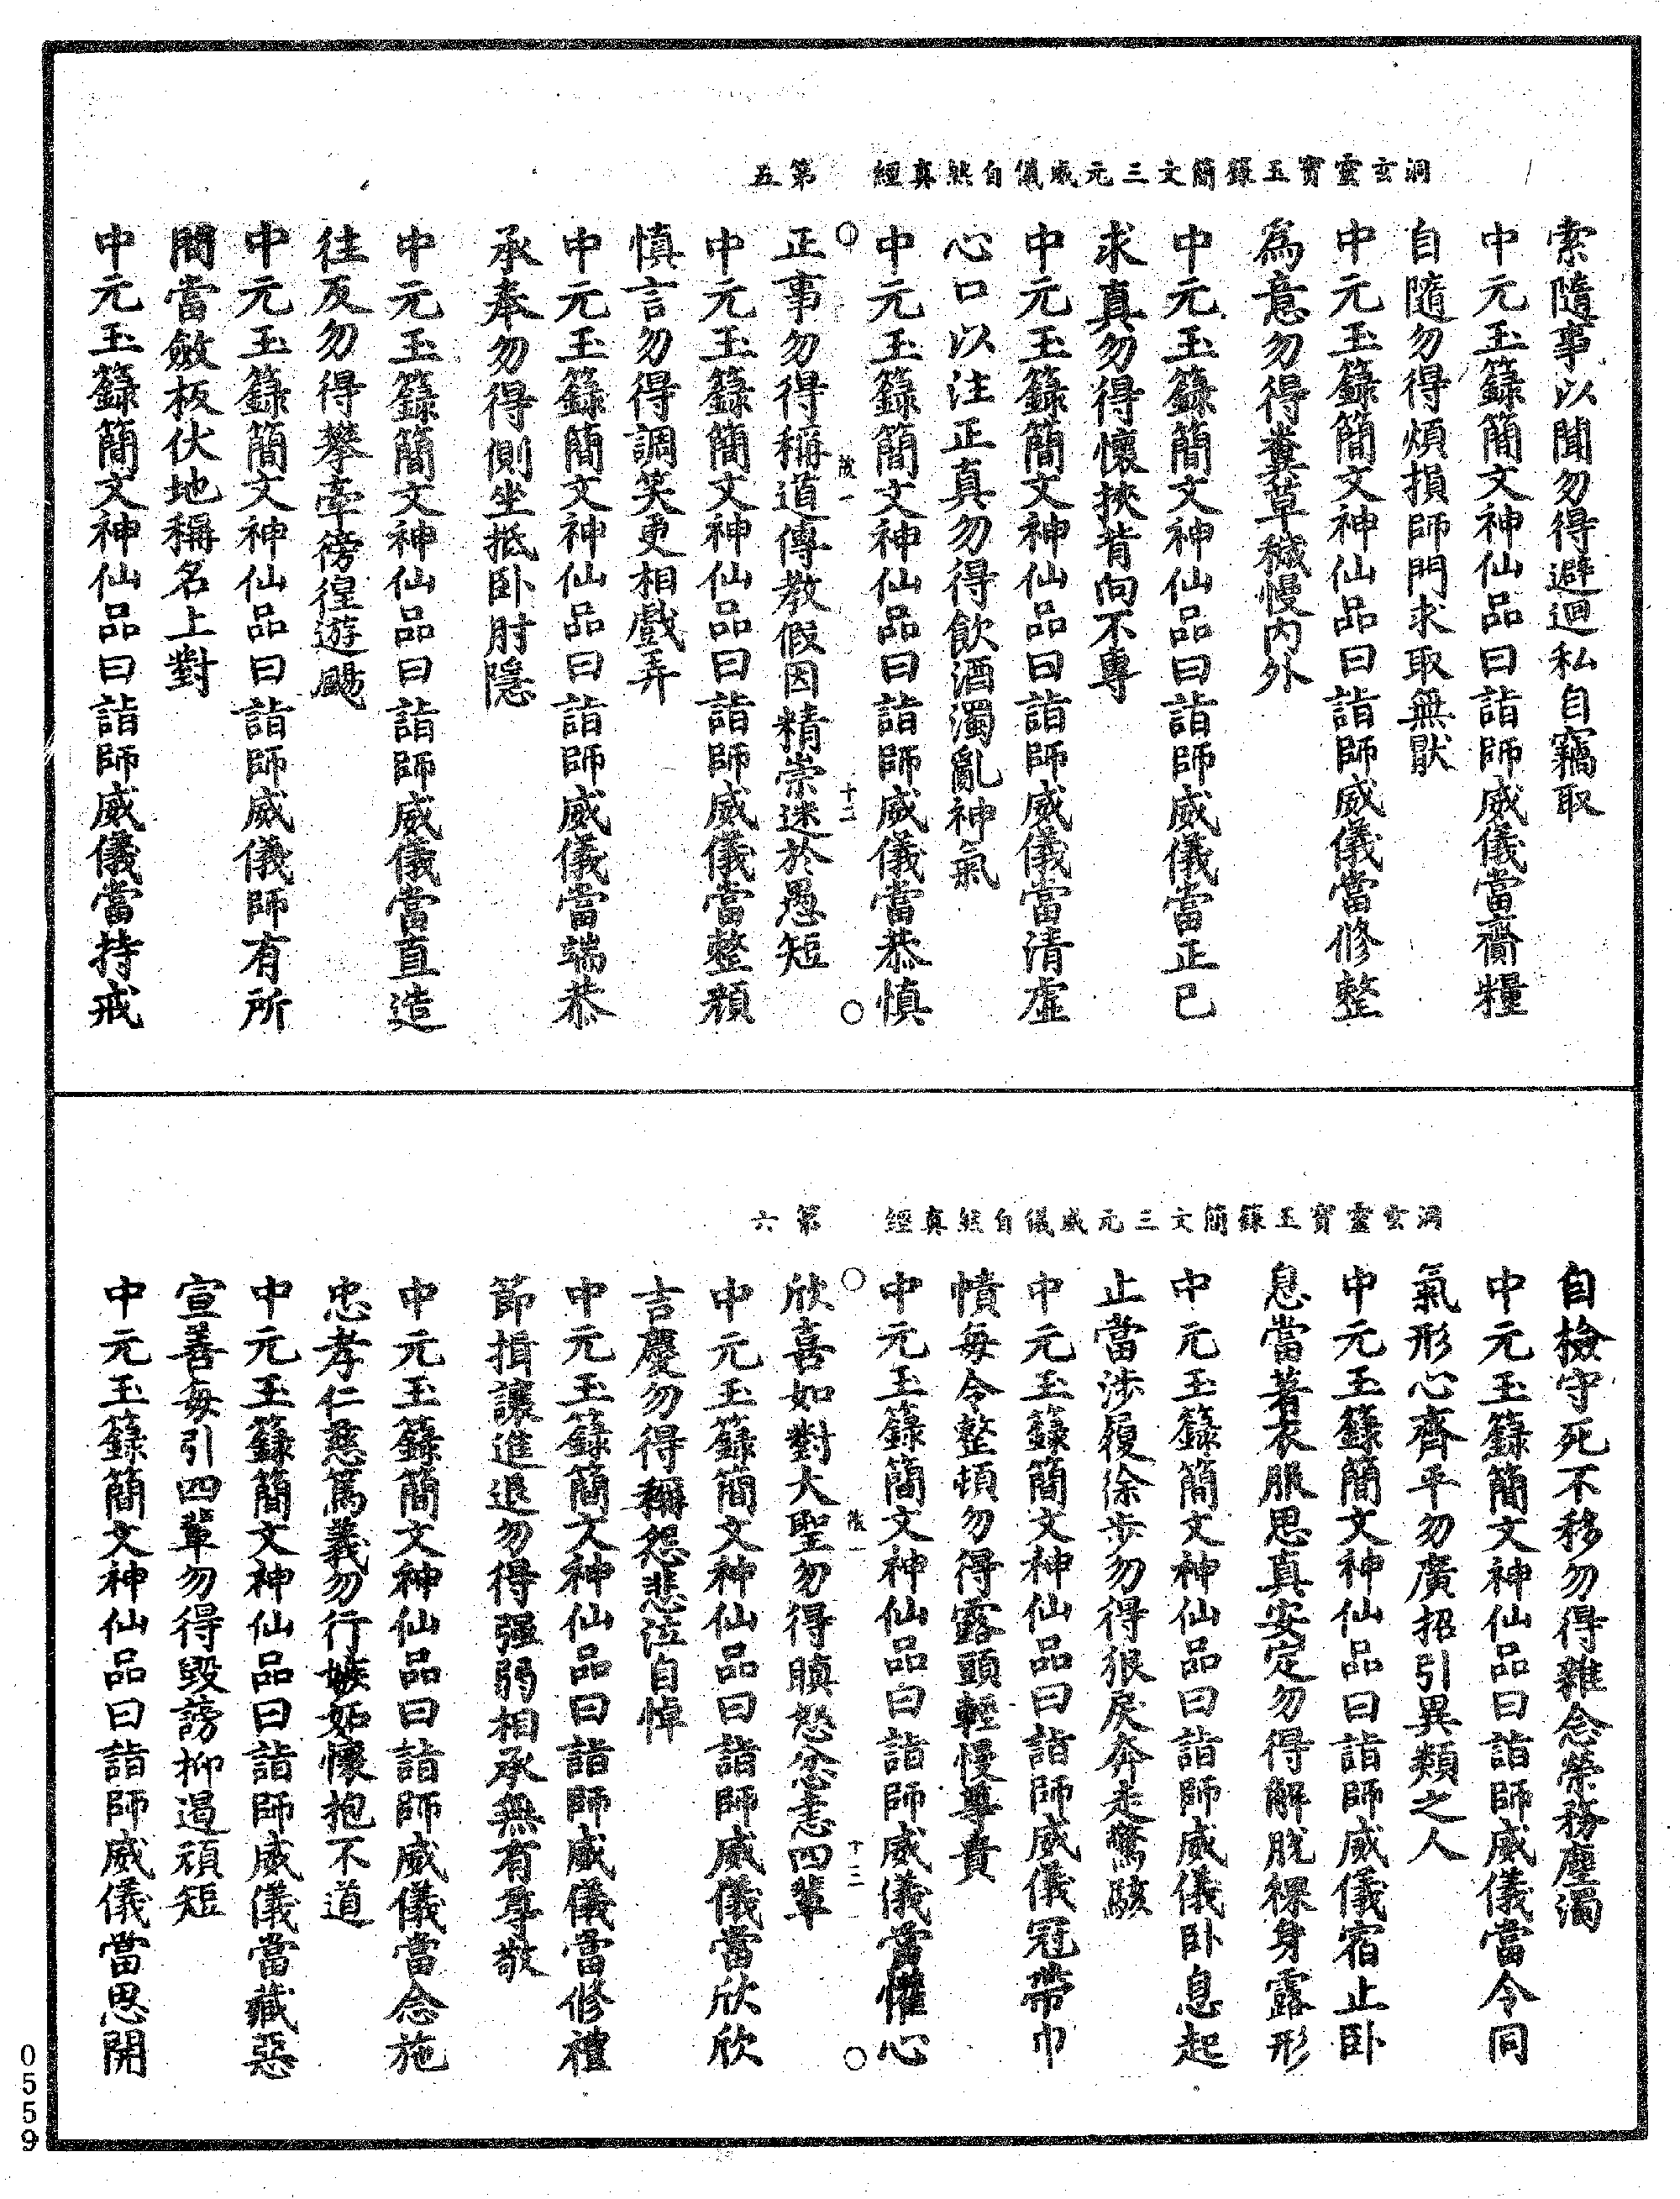 洞玄靈寶玉籙簡文三元威儀自然真經　第五
索隨事以聞勿得避迴私自竊取
中元玉籙簡文神仙品曰詣師威儀當齎糧
自隨勿得煩損師門求取無猒
中元玉籙簡文神仙品曰詣師威儀當修整
為意勿得糞草穢慢內外
中元玉籙簡文神仙品曰詣師威儀當正己
求真勿得懷挾背向不專
中元玉籙簡文神仙品曰詣師威儀當清虛
心口以注正真勿得飲酒濁亂神氣
中元玉籙簡文神仙品曰詣師威儀當恭慎
十二
正事勿得稱道傳教假因精祟迷於愚短
中元玉籙簡文神仙品曰詣師威儀當整顏
慎言勿得調笑更相戲弄
中元玉籙簡文神仙品曰詣師威儀當端恭
承奉勿得側坐抵卧肘隱
中元玉籙簡文神仙品曰詣師威儀當直造
往反勿得攀牽徬徨遊颺
中元玉籙簡文神仙品曰詣師威儀師有所
問當斂板伏地稱名上對
中元玉籙簡文神仙品曰詣師威儀當持戒
洞玄靈寶玉籙簡文三元威儀自然真經　第六
自檢守死不移勿得雜念榮務塵濁
中元玉籙簡文神仙品曰詣師威儀當令同
氣形心齊平勿廣招引異類之人
中元玉籙簡文神仙品曰詣師威儀宿止卧
息當著衣服思真安定勿得解脫裸身露形
中元玉籙簡文神仙品曰詣師威儀卧息起
止當涉履徐步勿得狠戾奔走驚駭
中元玉籙簡文神仙品曰詣師威儀冠帶巾
幘每令整頓勿得露頭輕慢尊貴
中元玉籙簡文神仙品曰詣師威儀當懽心
十三
欣喜如對大聖勿得瞋怒忿恚四輩
中元玉籙簡文神仙品曰詣師威儀當欣欣
吉慶勿得稱怨悲泣自悼
中元玉籙簡文神仙品曰詣師威儀當修禮
節揖讓進退勿得强弱相承無有尊敬
中元玉籙簡文神仙品曰詣師威儀當念施
忠孝仁慈篤義勿行嫉妬懷抱不道
中元玉籙簡文神仙品曰詣師威儀當藏惡
宣善每引四輩勿得毀謗抑遏頑短
中元玉籙簡文神仙品曰詣師威儀當思開
0559